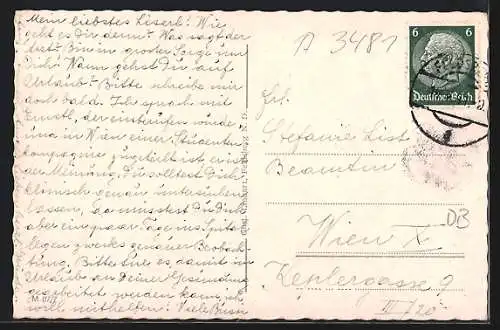 Mein liebstes Liserl! Wie
geht es dir denn? Was sagt der
Arzt? Bin in großer Sorge um
Dich! Wann gehst Du auf
Urlaub? Bitte schreibe mir
doch bald. Ich sprach mit
Ernstl, der einberufen wurde
und in Wien einer Studenten
kompagnie zugeteilt ist, er ist
der Meinung, Du solltest Dich
klinisch genau untersuchen
lassen, Du müsstest Dich
aber ein paar Tage ins Spital
legen zwecks genauer Beobach
tung. Bitte tue es damit im
Urlaub an Deiner Gesundung
gearbeitet werden kann, ich
will mithelfen! Viele Bussi
P 3481
6 6
Deutsches Reich
Frl.
Stefanie List
Beamtin
Wien X
DB
Keplergasse 2
III/20